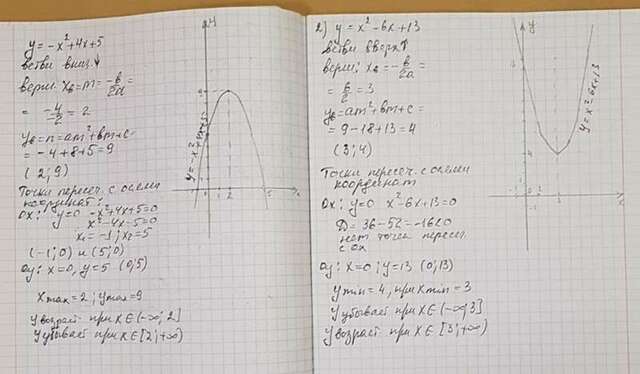 y = -x² + 4x + 5
ветви вниз ↓
верш. xв = m = -b/2a =
= -4/-2 = 2
yв = n = am² + bm + c =
= -4 + 8 + 5 = 9
(2; 9)
Точки пересеч. с осями
координат:
Ox: y=0 -x²+4x+5=0
x²-4x-5=0
x₁ = -1; x₂ = 5
(-1; 0) и (5; 0)
Oy: x=0, y=5 (0; 5)
Xmax = 2; ymax = 9
y возраст. при x∈(-∞; 2]
y убывает при x∈[2; +∞)
y
9
y = -x²
2
5
x
2) y = x² - 6x + 13
ветви вверх ↑
верш: xв = -b/2a =
= 6/2 = 3
yв = am² + bm + c =
= 9 - 18 + 13 = 4
(3; 4)
Точки пересеч. с осями
координат
Ox: y=0 x²-6x+13=0
D = 36-52 = -16<0
нет точек пересеч.
с ox
Oy: x=0; y=13 (0; 13)
ymin = 4, при xmin = 3
y убывает при x∈(-∞; 3]
y возраст при x∈[3; +∞)
y
y = x² - 6x + 13
4
x